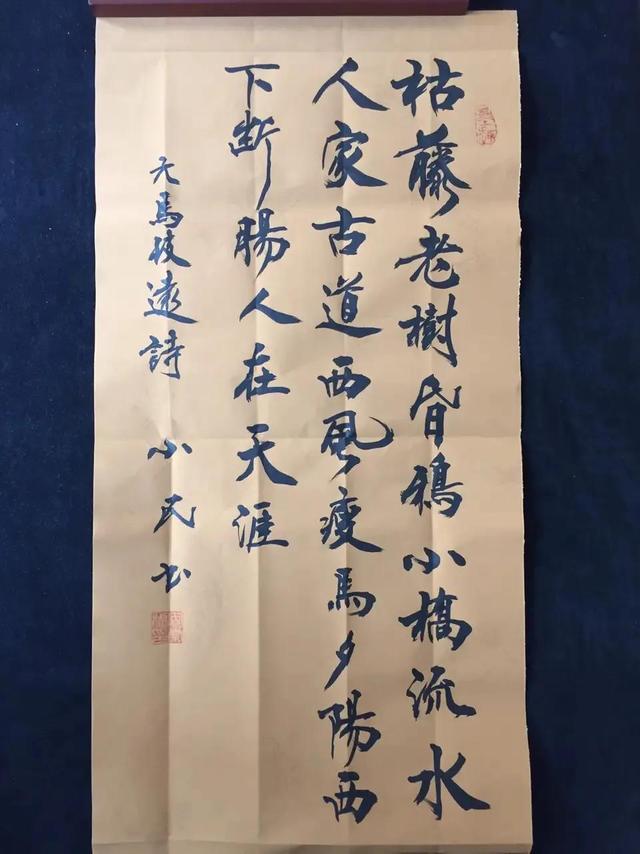 枯藤老樹昏鴉小橋流水
人家古道西風瘦馬夕陽西
下断腸人在天涯
元馬致遠詩 小民书